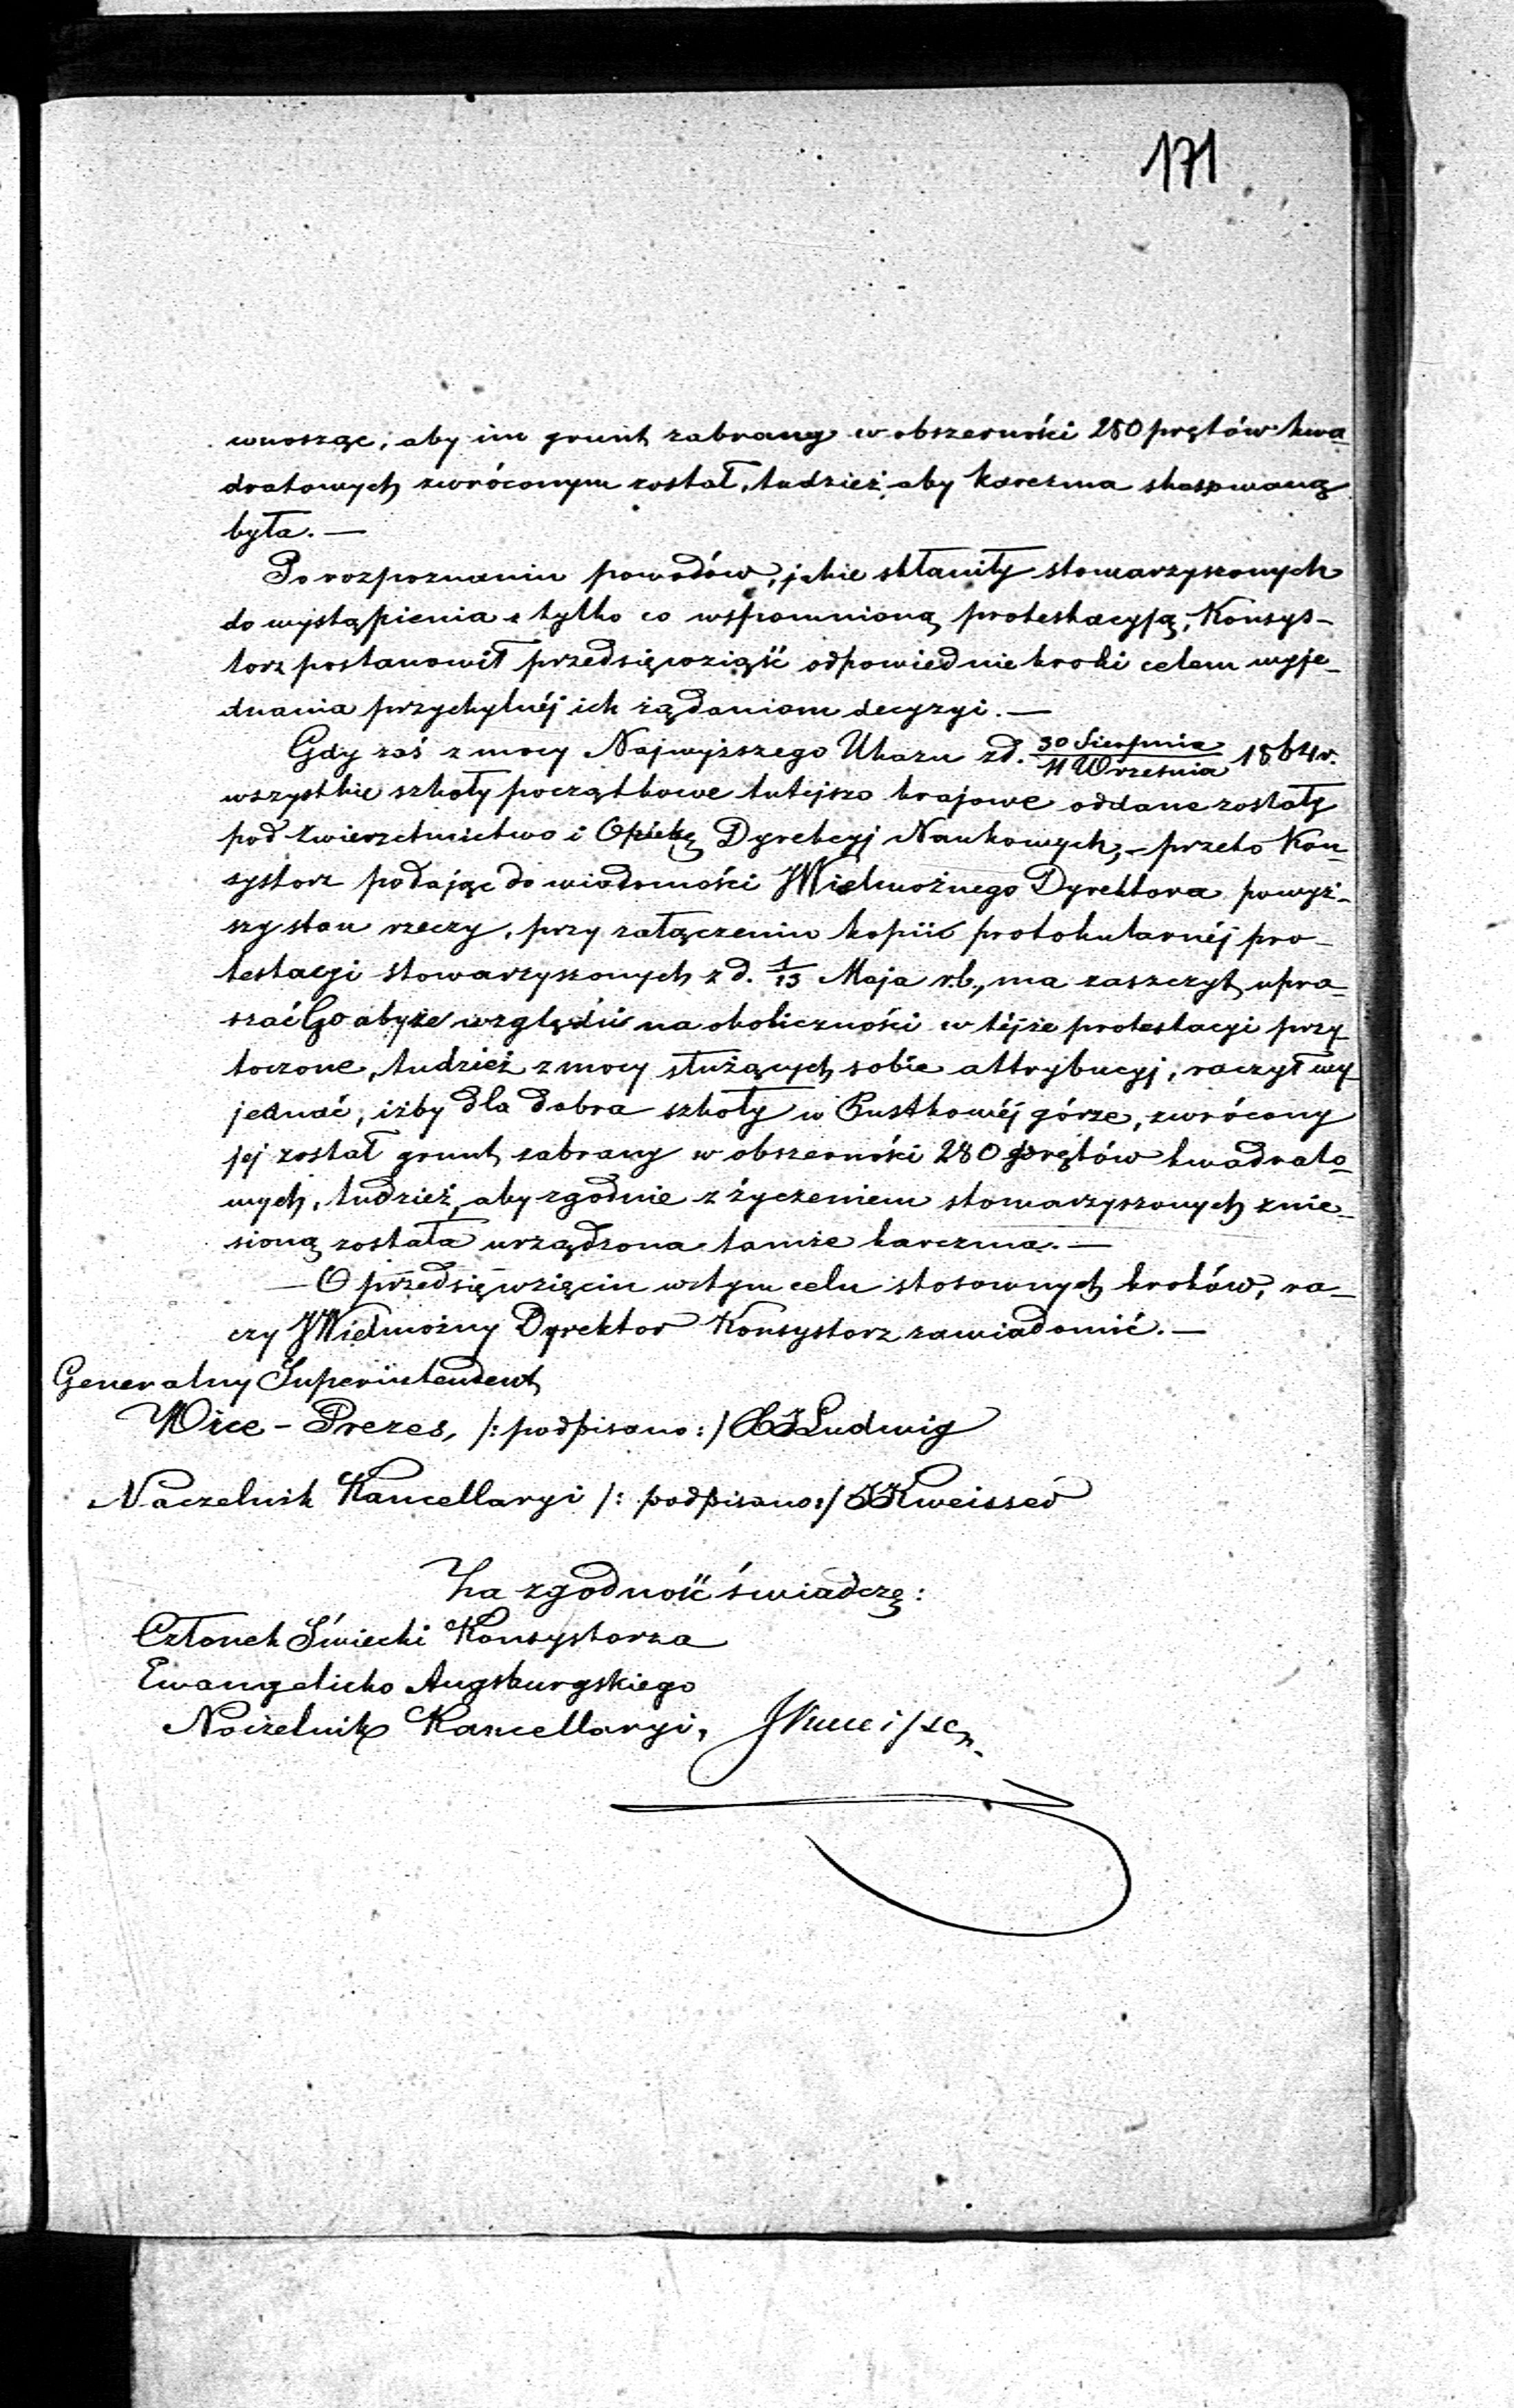 171
wnosząc, aby im grunt zabrany w obszerności 280 prętów kwa-
dratowych zwróconym został, tudzież, aby karczma skasowaną
była. —
Po rozpoznaniu powodów, jakie skłaniły stowarzyszonych
do wystąpienia z tylko co wspomnioną protestacyją, Konsys-
torz postanowił przedsięwziąść odpowiednie kroki celem wyje-
dnania przychylnéj ich żądaniom decyzyi. —
Gdy zaś z mocy Najwyższego Ukazu z d. 30 Sierpnia / 11 Września 1864 r.
wszystkie szkoły początkowe tutejszo krajowe oddane zostały
pod zwierzchnictwo i Opiekę Dyrekcyj Naukowych, – przeto Kon-
systorz podając do wiadomości JWielmożnego Dyrektora powyż-
szy stan rzeczy, przy załączeniu kopii protokularnéj pro-
testacyi stowarzyszonych z d. 1/13 Maja r.b., ma zaszczyt upra-
szać Go aby ze względu na okoliczności w téjże protestacyi przy-
toczone, tudzież z mocy służących sobie attrybucyj, raczył wy-
jednać, iżby dla dobra szkoły w Pustkowéj górze, zwrócony
jej został grunt zabrany w obszerności 280 prętów kwadrato-
wych, tudzież, aby zgodnie z życzeniem stowarzyszonych znie-
sioną została urządzona tamże karczma. —
— O przedsięwzięciu w tym celu stosownych kroków, ra-
czy JWielmożny Dyrektor Konsystorz zawiadomić. —
Generalny Superintendent
Vice-Prezes, /: podpisano :/ Ludwig
Naczelnik Kancellaryi /: podpisano :/
Za zgodność świadczę:
Członek Świecki Konsystorza
Ewangelicko Augsburgskiego
Naczelnik Kancellaryi,